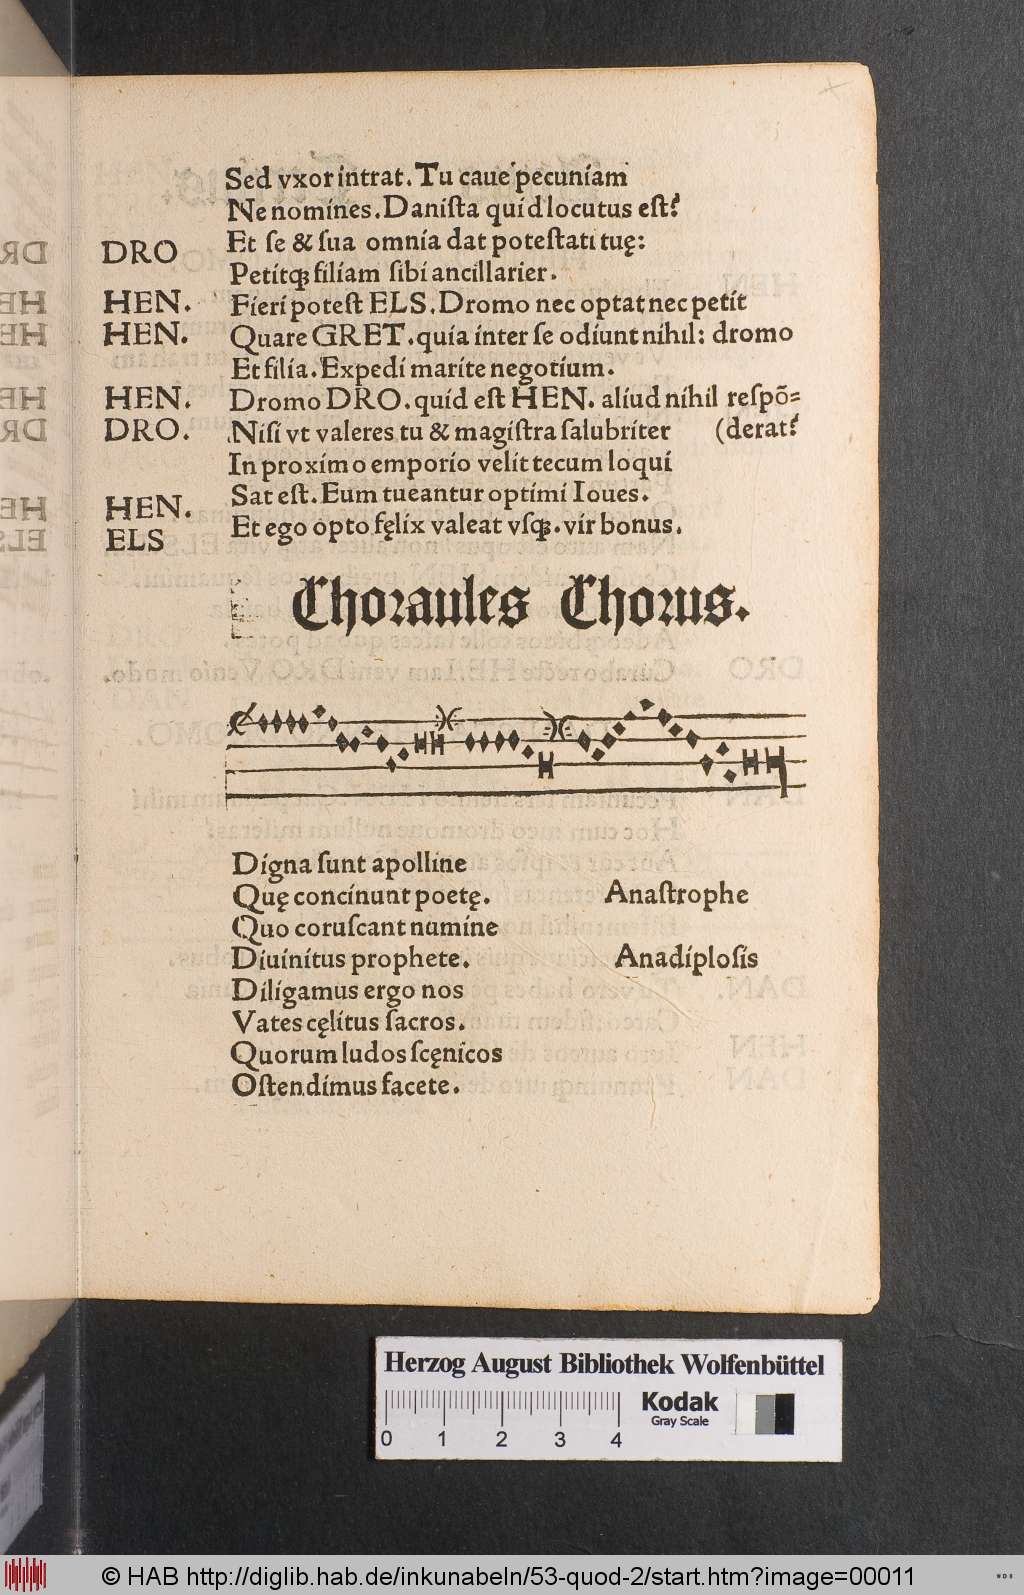 Sed vxor intrat. Tu caue pecuniam
Ne nomines. Danista quid locutus eſt?
DRO Et ſe & ſua omnia dat poteſtati tuę:
Petitqꝫ filiam ſibi ancillarier.
HEN. Fieri poteſt ELS. Dromo nec optat nec petit
HEN. Quare GRET. quia inter ſe odiunt nihil: dromo
Et filia. Expedi marite negotium.
HEN. Dromo DRO. quid eſt HEN. aliud nihil reſpõ=
DRO. Niſi vt valeres tu & magiſtra ſalubriter (derat?
In proximo emporio velit tecum loqui
HEN. Sat eſt. Eum tueantur optimi Ioues.
ELS Et ego opto fęlix valeat vſqꝫ. vir bonus.
Choraules Chorus.
Digna ſunt apolline
Quę concinunt poetę. Anaſtrophe
Quo coruſcant numine
Diuinitus prophete. Anadiploſis
Diligamus ergo nos
Vates cęlitus ſacros.
Quorum ludos ſcęnicos
Oſtendimus facete.
Herzog August Bibliothek Wolfenbüttel
Kodak
Gray Scale
0 1 2 3 4
© HAB http://diglib.hab.de/inkunabeln/53-quod-2/start.htm?image=00011